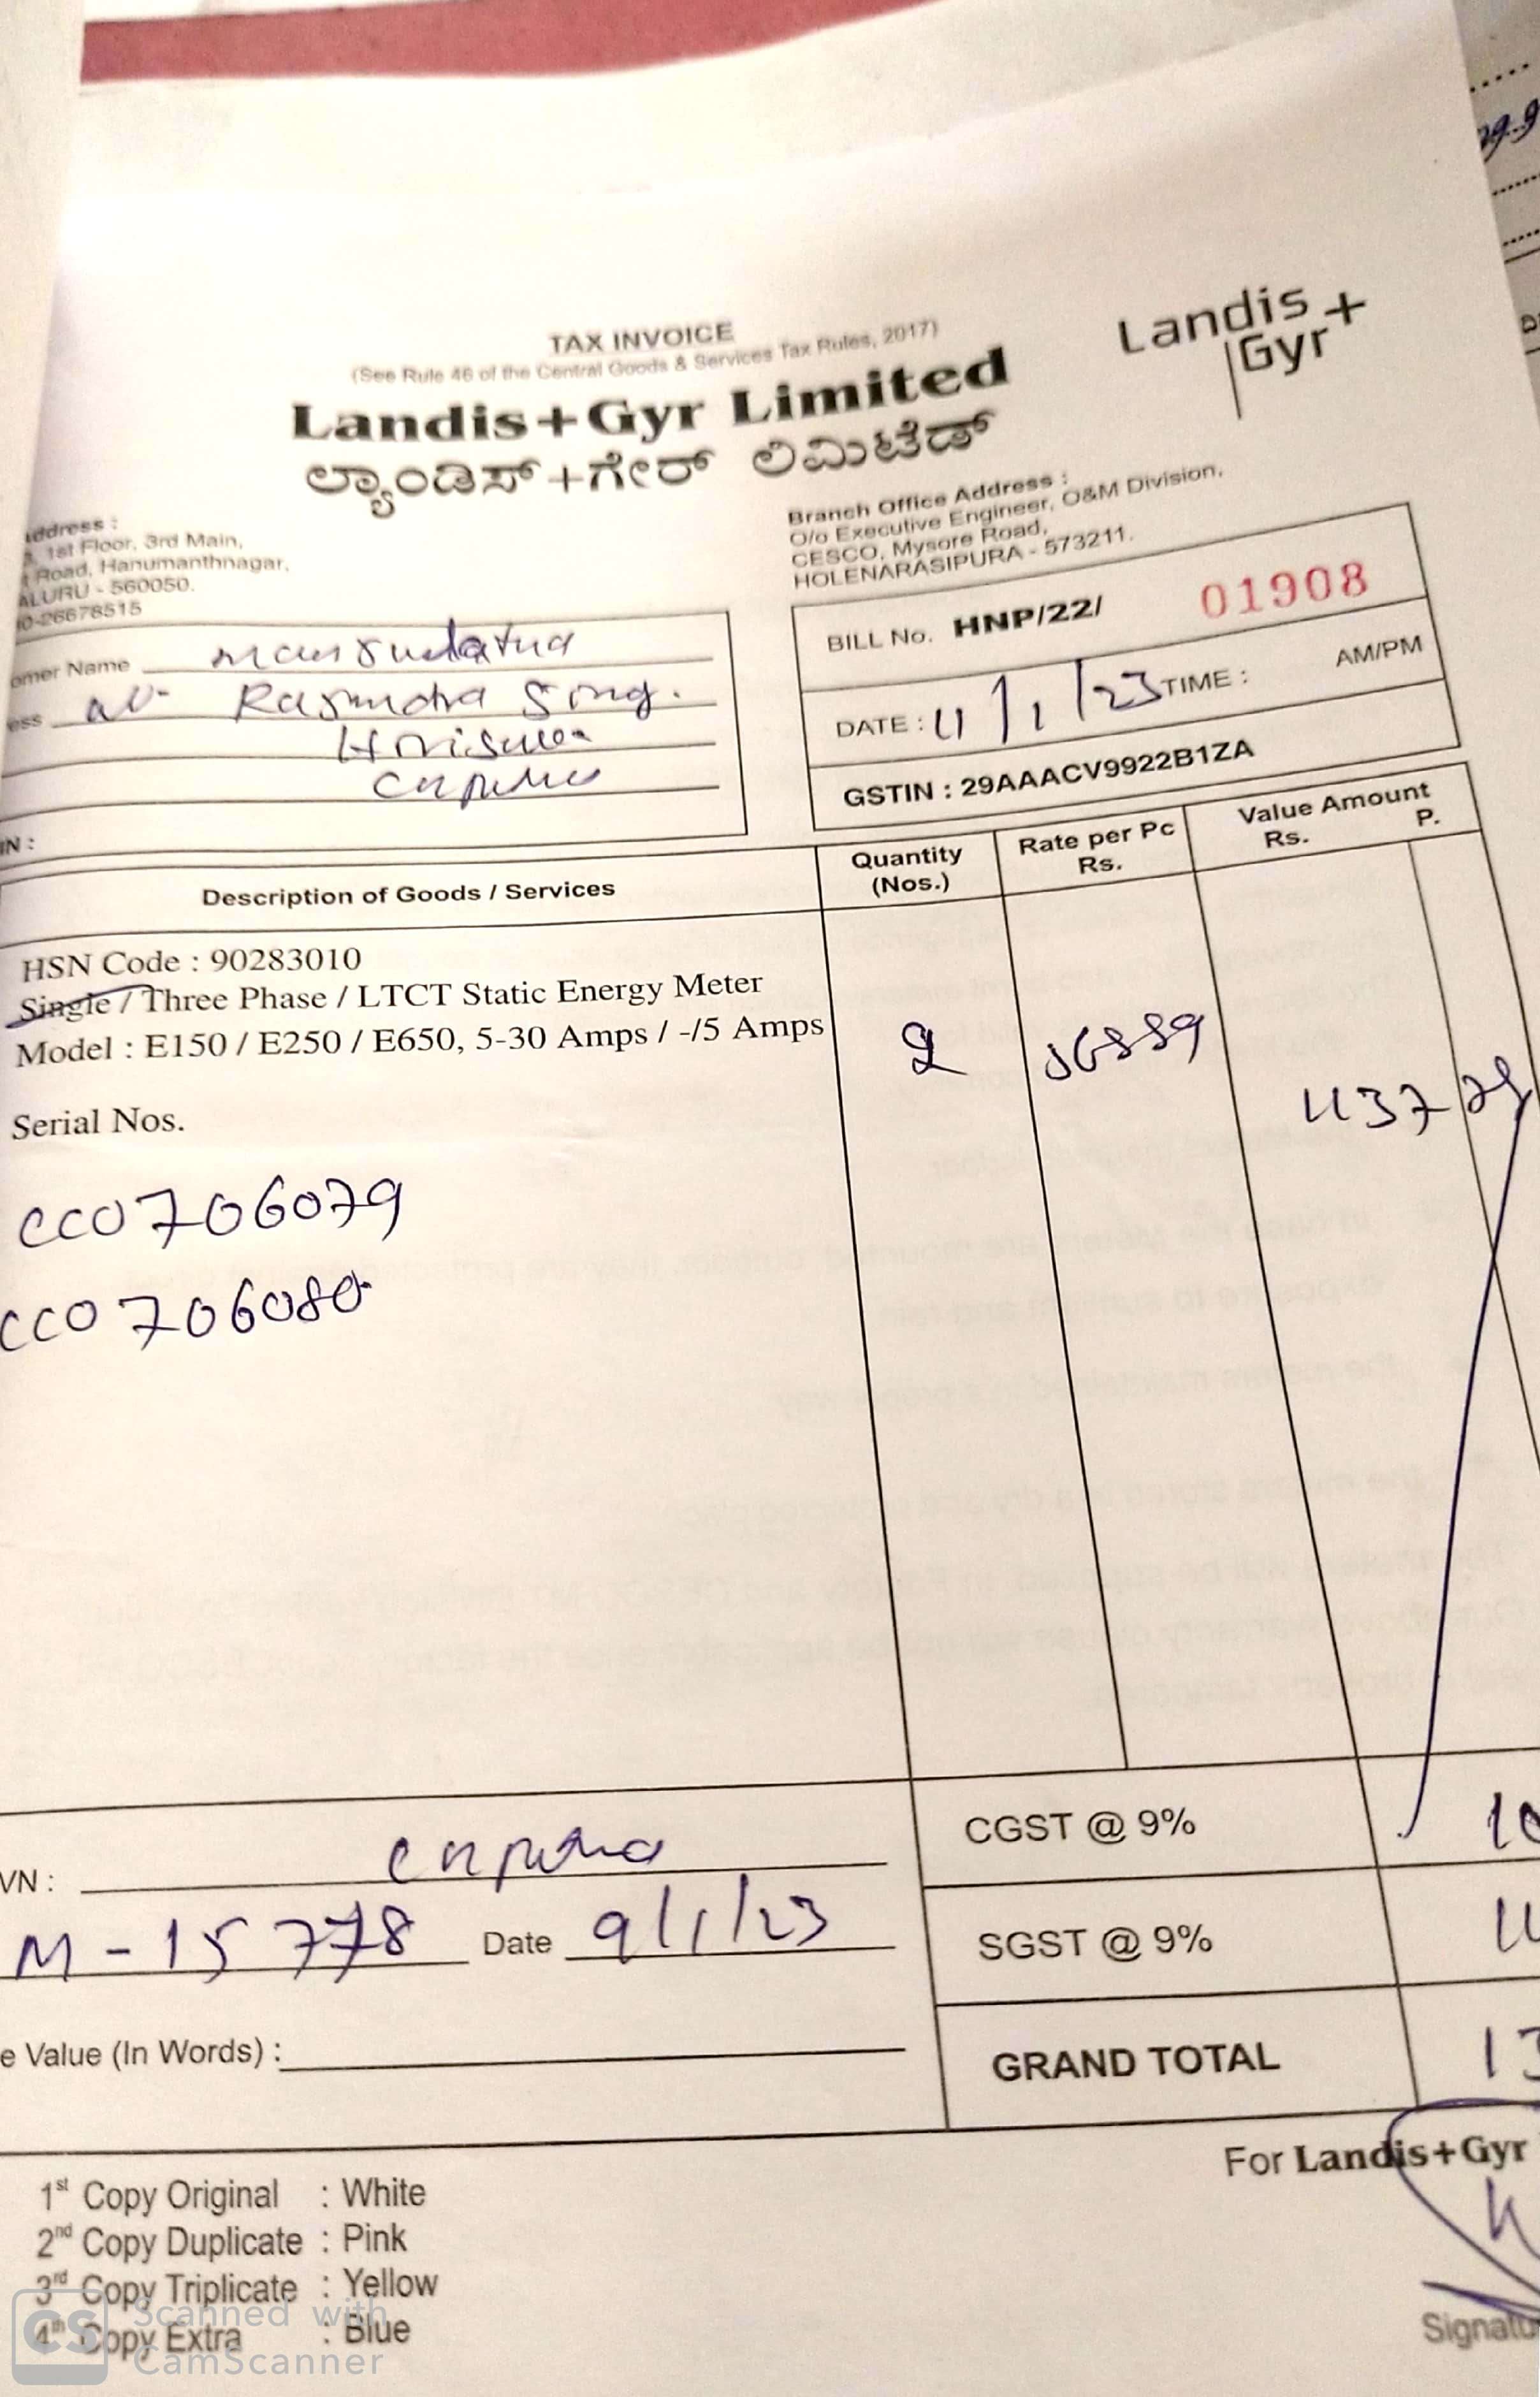 TAX INVOICE
(See Rule 46 of the Central Goods & Services Tax Rules, 2017)
Landis+Gyr Limited
ಲ್ಯಾಂಡಿಸ್+ಗೇರ್ ಲಿಮಿಟೆಡ್
Landis
Gyr+
ddress :
1st Floor, 3rd Main,
Road, Hanumanthnagar,
ALURU - 560050.
0-26678515
Branch Office Address :
O/o Executive Engineer, O&M Division,
CESCO, Mysore Road,
HOLENARASIPURA - 573211.
omer Name
ess
IN :
BILL No. HNP/22/ 01908
DATE : 11/1/23 TIME : AM/PM
GSTIN : 29AAACV9922B1ZA
Description of Goods / Services Quantity (Nos.) Rate per Pc Rs. Value Amount Rs. P.
HSN Code : 90283010
Single / Three Phase / LTCT Static Energy Meter
Model : E150 / E250 / E650, 5-30 Amps / -/5 Amps 2
Serial Nos.
CC0706079
CC0706080
CGST @ 9%
VN :
M - 15778 Date 9/1/23
SGST @ 9%
e Value (In Words) :
GRAND TOTAL
For Landis+Gyr
1st Copy Original : White
2nd Copy Duplicate : Pink
3rd Copy Triplicate : Yellow
4th Copy Extra : Blue
Signatu
CS Scanned with
CamScanner